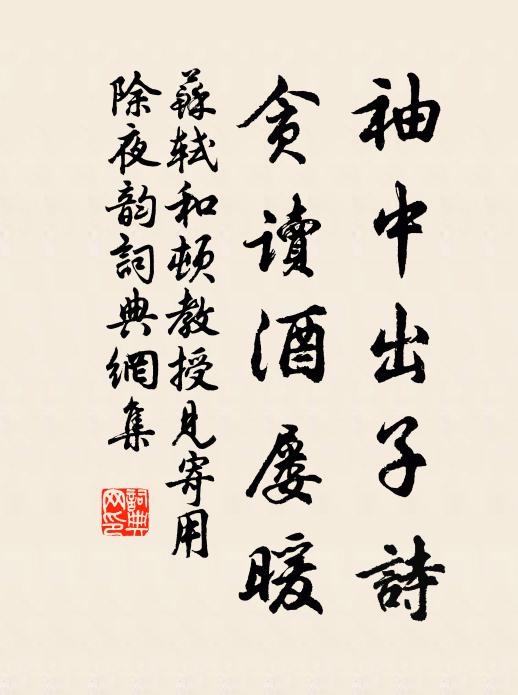 袖中出子詩
貪讀酒屡暖
蘇軾和頓教授見寄用
除夜韵詞典網集
詞典网印